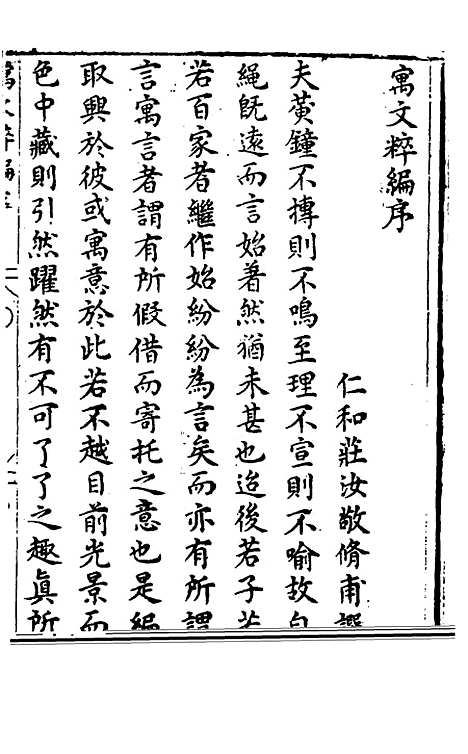 寓文粹編序
仁和莊汝敬脩甫譔
夫黃鐘不摶則不鳴至理不宣則不喻故自
繩既遠而言始著然猶未甚也迨後若子若
若百家者繼作始紛紛為言矣而亦有所謂
言寓言者謂有所假借而寄托之意也是編
取興於彼或寓意於此若不越目前光景而
色中藏則引然躍然有不可了了之趣眞所